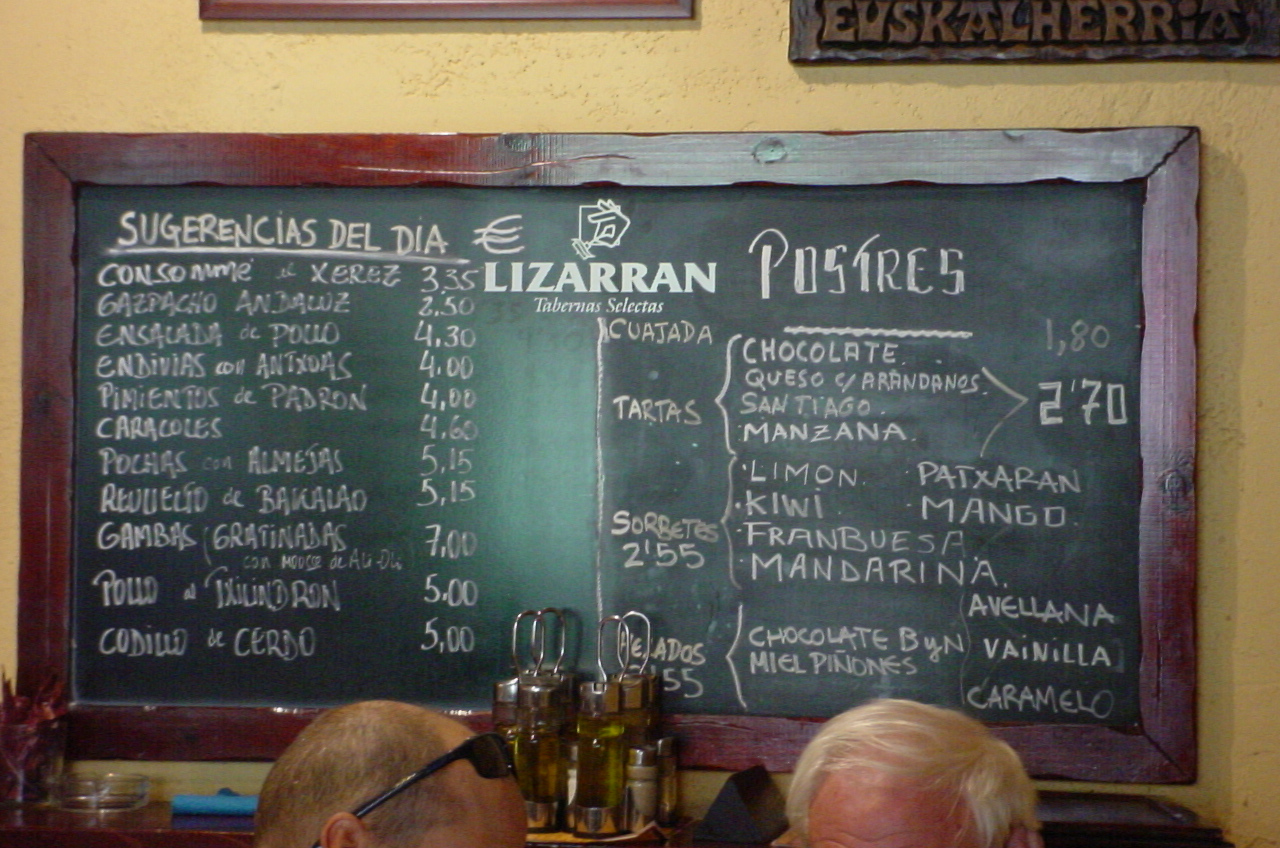 EUSKALHERRIA
SUGERENCIAS DEL DIA €
CONSOMME al XEREZ 3,35
GAZPACHO ANDALUZ 2.50
ENSALADA de POLLO 4.30
ENDIVIAS con ANTXOAS 4.00
PIMIENTOS de PADRON 4,00
CARACOLES 4.60
POCHAS con ALMEJAS 5,15
REVUELTO de BAKALAO 5,15
GAMBAS GRATINADAS 7,00
con MOUSSE de ALI-OLI
POLLO al TXILINDRON 5,00
CODILLO de CERDO 5,00
LIZARRAN
Tabernas Selectas
POSTRES
CUAJADA 1,80
TARTAS
CHOCOLATE.
QUESO C/ ARANDANOS.
SANTIAGO.
MANZANA.
2'70
SORBETES
2'55
·LIMON. PATXARAN
·KIWI MANGO.
·FRANBUESA
·MANDARINA.
HELADOS
55
CHOCOLATE ByN
MIEL PIÑONES
AVELLANA
VAINILLA
CARAMELO